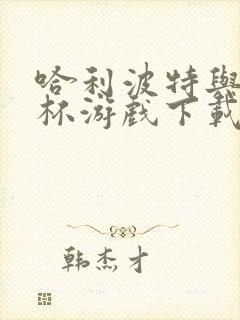 哈利波特與
杯游戲下載
韩杰才